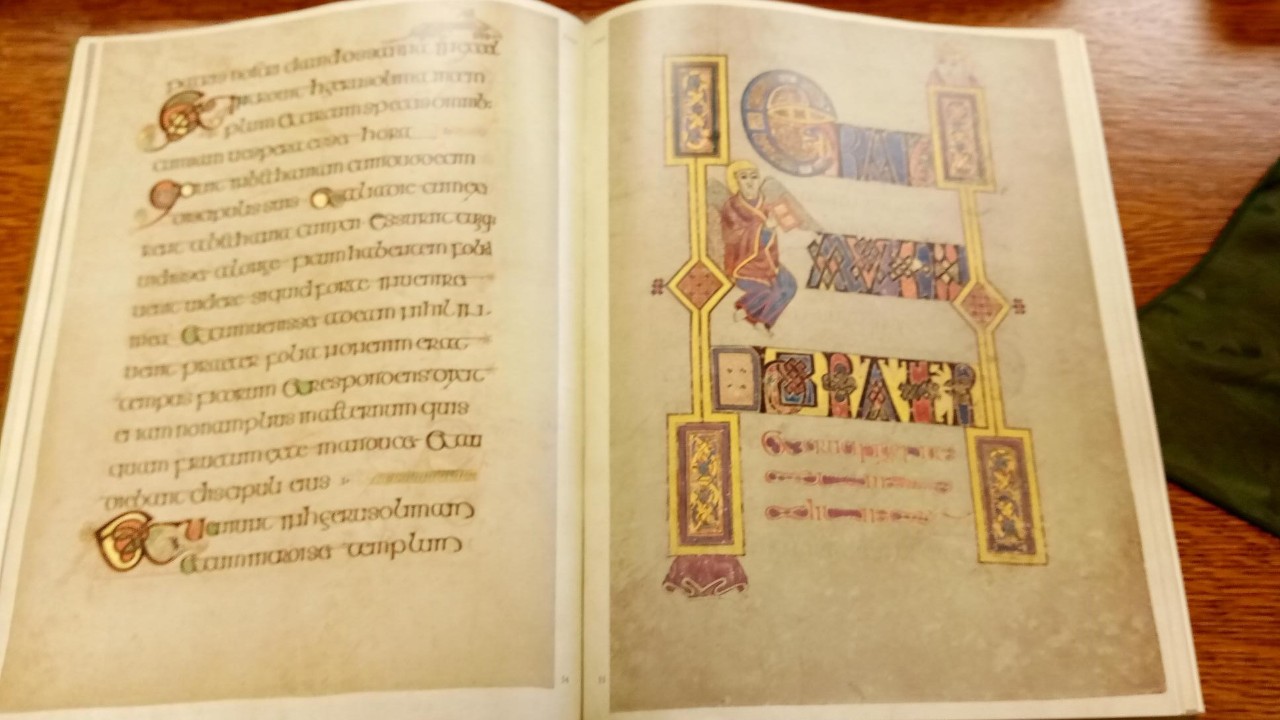 patris nostri david ossanna in
hierusolima in tem
plum et circumspectis omnib:
cum iam vespera esset hora
bethaniam cum duodecim
discipulis suis Et alia die cum exi
rent a bethania esuriit cumq:
vidisset a longe ficum habentem folia
venit videre si quid forte inveniret
in ea Et cum venisset ad eam nihil in
venit praeter folia non enim erat
tempus ficorum Et respondens dixit
ei iam non amplius in aeternum quis
quam fructum ex te manducet Et
ebant discipuli eius
Et veniunt in hierusolimam
Et cum introisset templum
ERAT
AUTEM
HORA TER